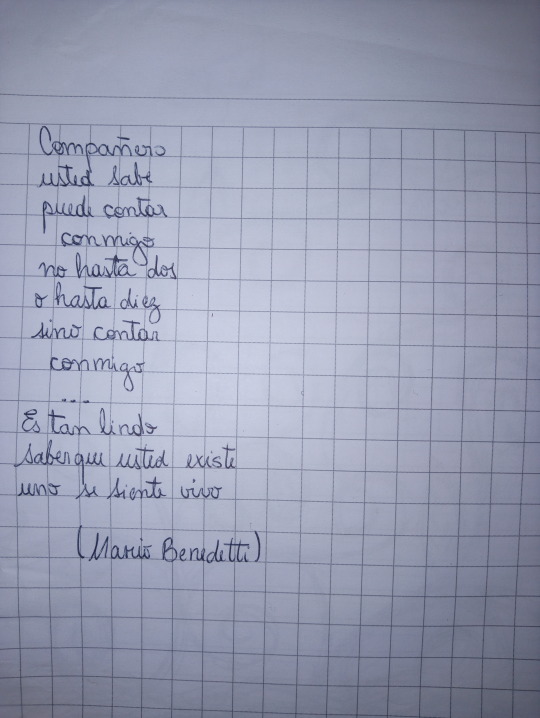 Compañero
usted sabe
puede contar
conmigo
no hasta dos
o hasta diez
sino contar
conmigo
...
Es tan lindo
saber que usted existe
uno se siente vivo
(Mario Benedetti)